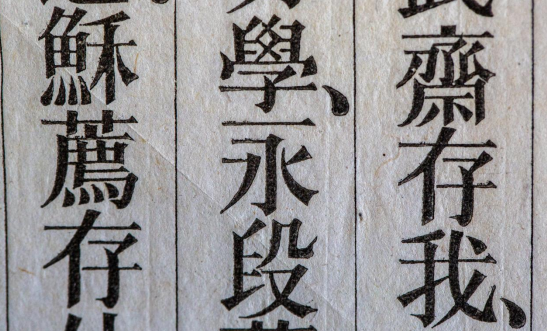 齋存我、
學、永段
穌薦存